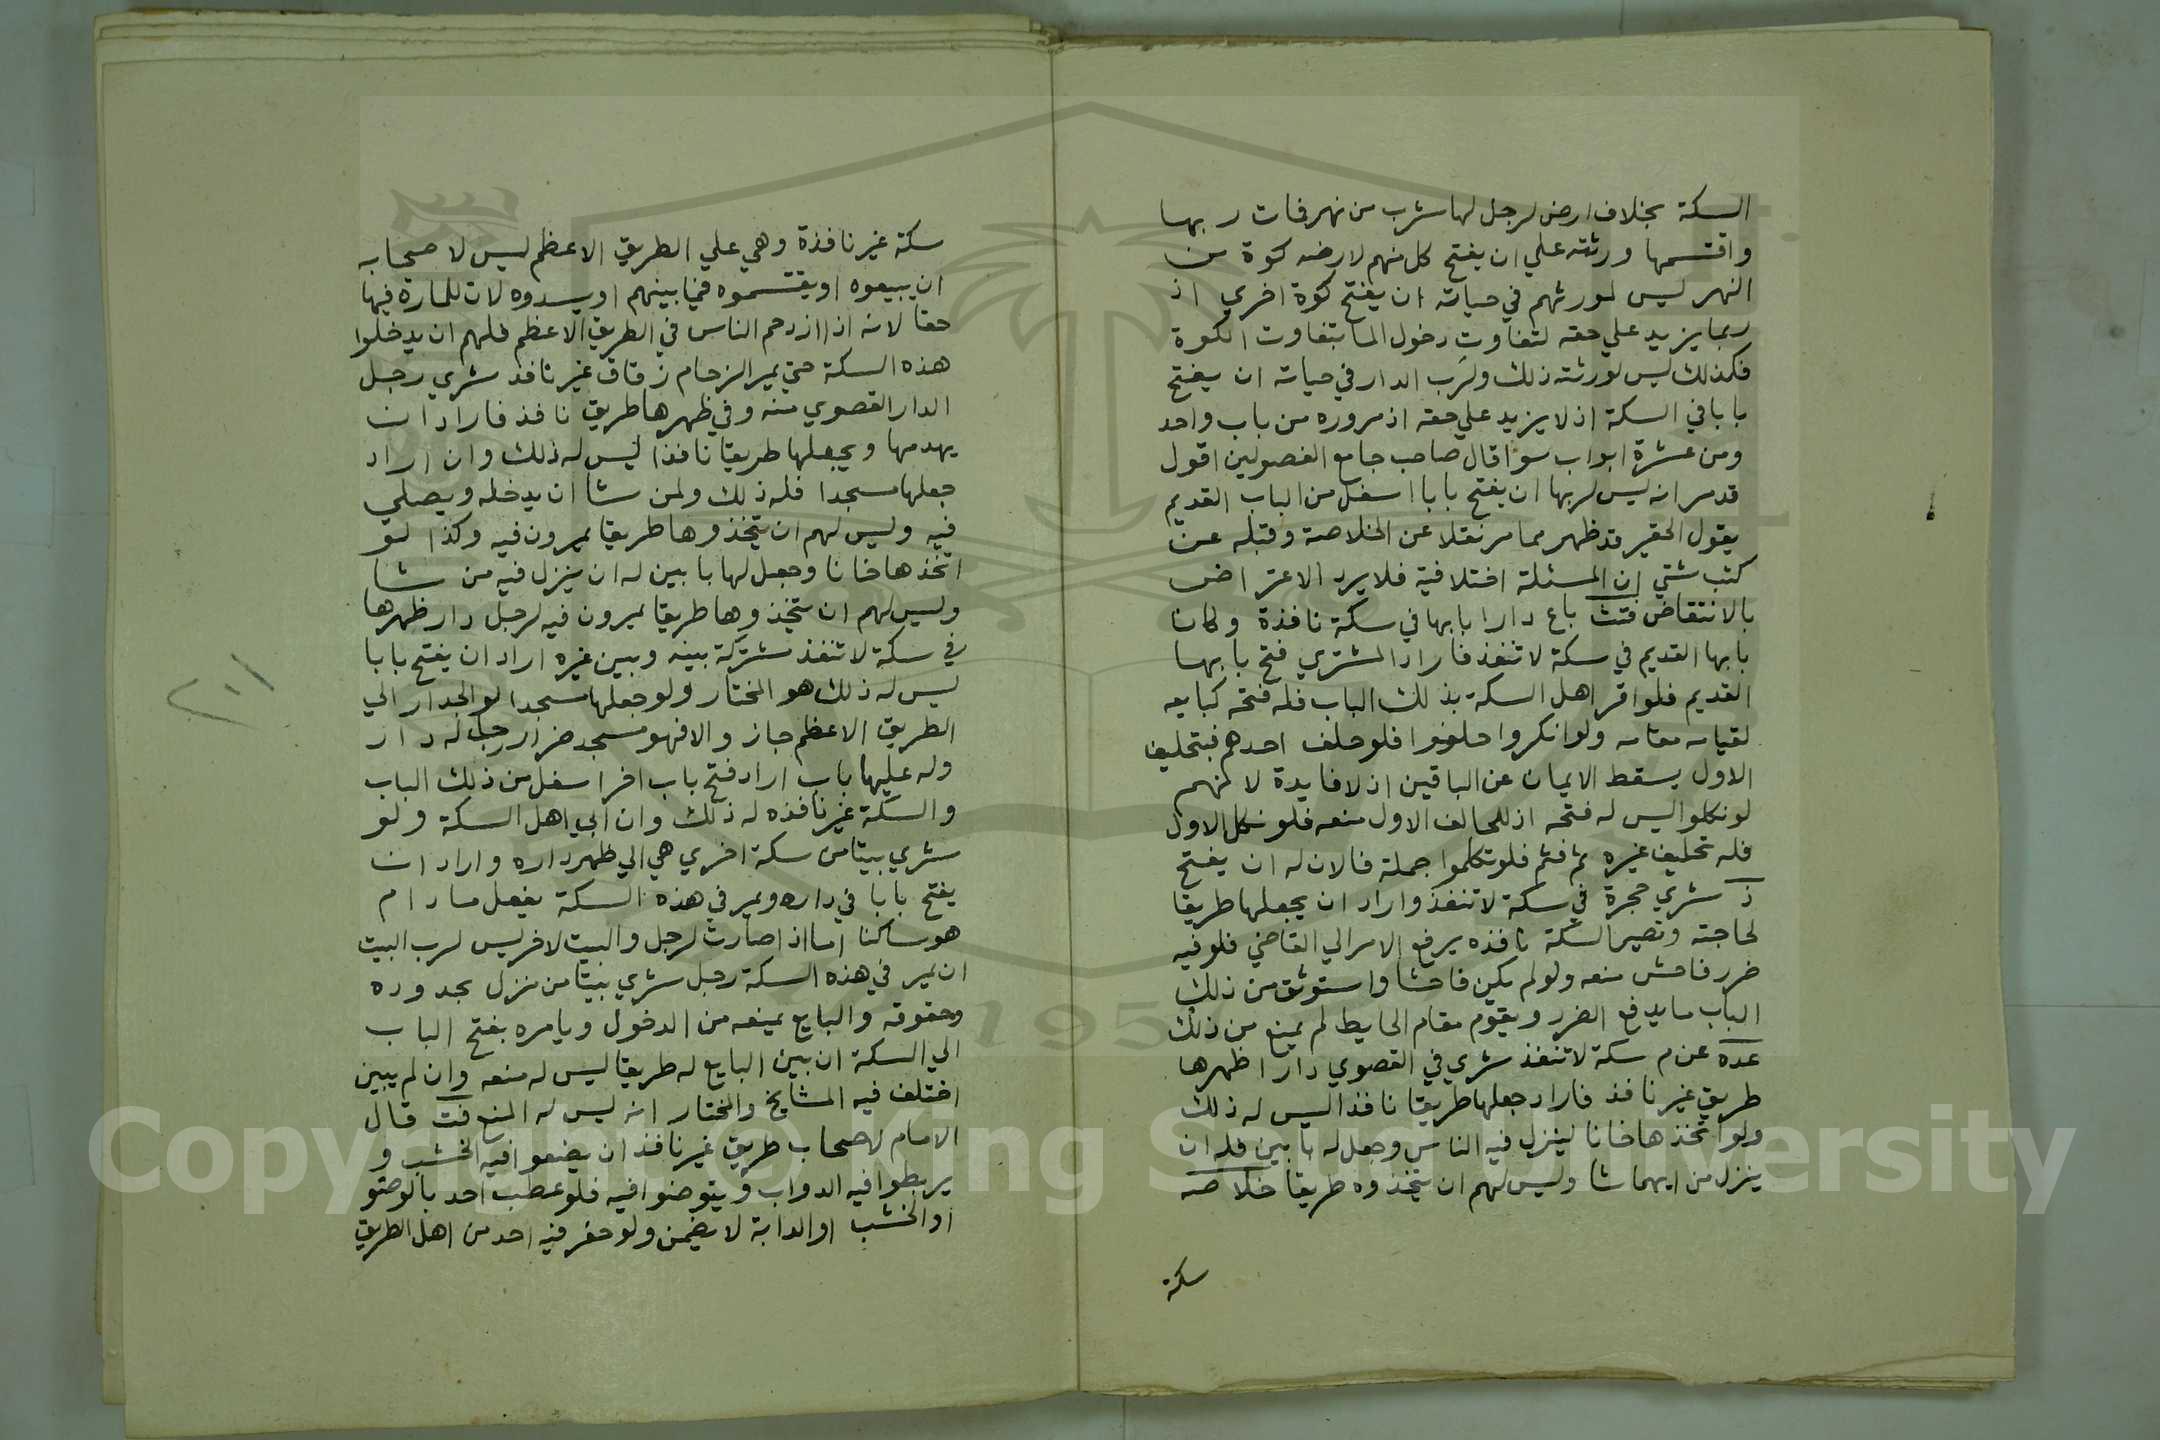 السكة بخلاف ارض لرجل لها شرب من نهر فمات ربها
واقتسمها ورثته علي ان يفتح كل منهم لارضه كوة من
النهر ليس لمورثهم في حياته ان يفتح كوة اخري اذ
ربما يزيد علي حقه لتفاوت دخول الما بتفاوت الكوة
فكذلك ليس لورثته ذلك ولرب الدار في حياته ان يفتح
بابا في السكة اذ لا يزيد علي حقه اذ مروره من باب واحد
ومن عشرة ابواب سوا قال صاحب جامع الفصولين اقول
قد مر انه ليس لربها ان يفتح بابا اسفل من الباب القديم
يقول الحقير قد ظهر مما مر نقلا عن الخلاصة وقبله عن
كتب شتي ان المسئلة اختلافية فلا يرد الاعتراض
بالانتقاض فتث باع دارا بابها في سكة نافذة وكانا
بابها القديم في سكة لا تنفذ فاراد المشتري فتح بابها
القديم فلو اقر اهل السكة بذلك الباب فله فتحه كبايعه
لقيامه مقامه ولو انكروا حلفوا فلو حلف احدهم فبتحليف
الاول يسقط الايمان عن الباقين اذ لا فايدة لانهم
لو نكلوا ليس له فتحه اذ للحالف الاول منعه فلو نكل الاول
فله تحليف غيره ثم فثم فلو نكلوا جملة فالان له ان يفتح
ذ شري حجرة في سكة لا تنفذ واراد ان يجعلها طريقا
لحاجته وتصير السكة نافذه يرفع الامر الي القاضي فلو فيه
ضرر فاحش منعه ولو لم يكن فاحشا واستوثق من ذلك
الباب ما يدفع الضرر ويقوم مقام الحايط لم يمنع من ذلك
عدة عن م سكة لا تنفذ شري في القصوي دارا ظهرها
طريق غير نافذ فاراد جعلها طريقا نافذا ليس له ذلك
ولو اتخذها خانا لينزل فيه الناس وجعل له بابين فله ان
ينزل من ايهما شا وليس لهم ان يتخذوه طريقا خلاصه
سكة
سكة غير نافذة وهي علي الطريق الاعظم ليس لاصحابه
ان يبيعوه او يقتسموه فيما بينهم او يسدوه لان للمارة فيها
حقا لانه اذا ازدحم الناس في الطريق الاعظم فلهم ان يدخلوا
هذه السكة حتي يمر الزحام زقاق غير نافذ شري رجل
الدار القصوي منه وفي ظهرها طريق نافذ فاراد ان
يهدمها ويجعلها طريقا نافذا ليس له ذلك وان اراد
جعلها مسجدا فله ذلك ولمن شا ان يدخله ويصلي
فيه وليس لهم ان يتخذوها طريقا يمرون فيه وكذا لو
اتخذها خانا وجعل لها بابين له ان ينزل فيه من شا
وليس لهم ان يتخذوها طريقا يمرون فيه لرجل دار ظهرها
في سكة لا تنفذ مشتركة بينه وبين غيره اراد ان يفتح بابا
ليس له ذلك هو المختار ولو جعلها مسجدا لو الجدار الي
الطريق الاعظم جاز والا فهو مسجد ضرار رجل له دار
وله عليها باب اراد فتح باب اخر اسفل من ذلك الباب
والسكة غير نافذه له ذلك وان ابي اهل السكة ولو
شري بيتا من سكة اخري هي الي ظهر داره واراد ان
يفتح بابا في داره ويمر في هذه السكة يفعل ما دام
هو ساكنا اما اذا صارت لرجل والبيت لاخر ليس لرب البيت
ان يمر في هذه السكة رجل شري بيتا من منزل بحدوده
وحقوقه والبايع يمنعه من الدخول ويامره بفتح الباب
الي السكة ان بين البايع له طريقا ليس له منعه وان لم يبين
اختلف فيه المشايخ والمختار انه ليس له المنع فث قال
الامام لاصحاب طريق غير نافذ ان يضعوا فيه الخشب و
يربطوا فيه الدواب ويتوضوا فيه فلو عطب احد بالوضو
او الخشب او الدابة لا يضمن ولو حفر فيه احد من اهل الطريق
٢٠١
1957
Copyright © King Saud University